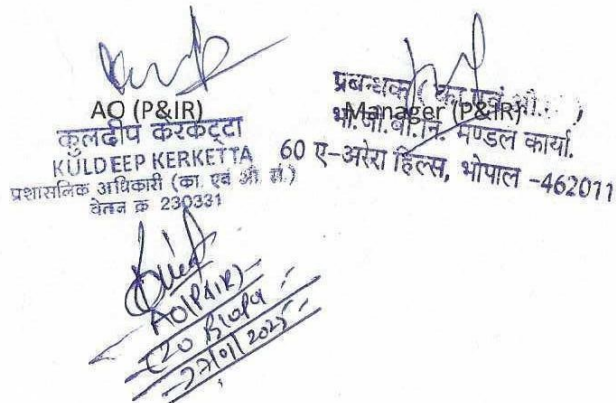 AO (P&IR)
कुलदीप केरकट्टा
KULDEEP KERKETTA
प्रशासनिक अधिकारी (का. एवं औ. सं.)
वेतन क्र 230331
प्रबन्धक ( का एवं औ.
Manager (P&IR)
भा.जी.बी.नि. मण्डल कार्या.
60 ए-अरेरा हिल्स, भोपाल -462011
AO(P&IR)